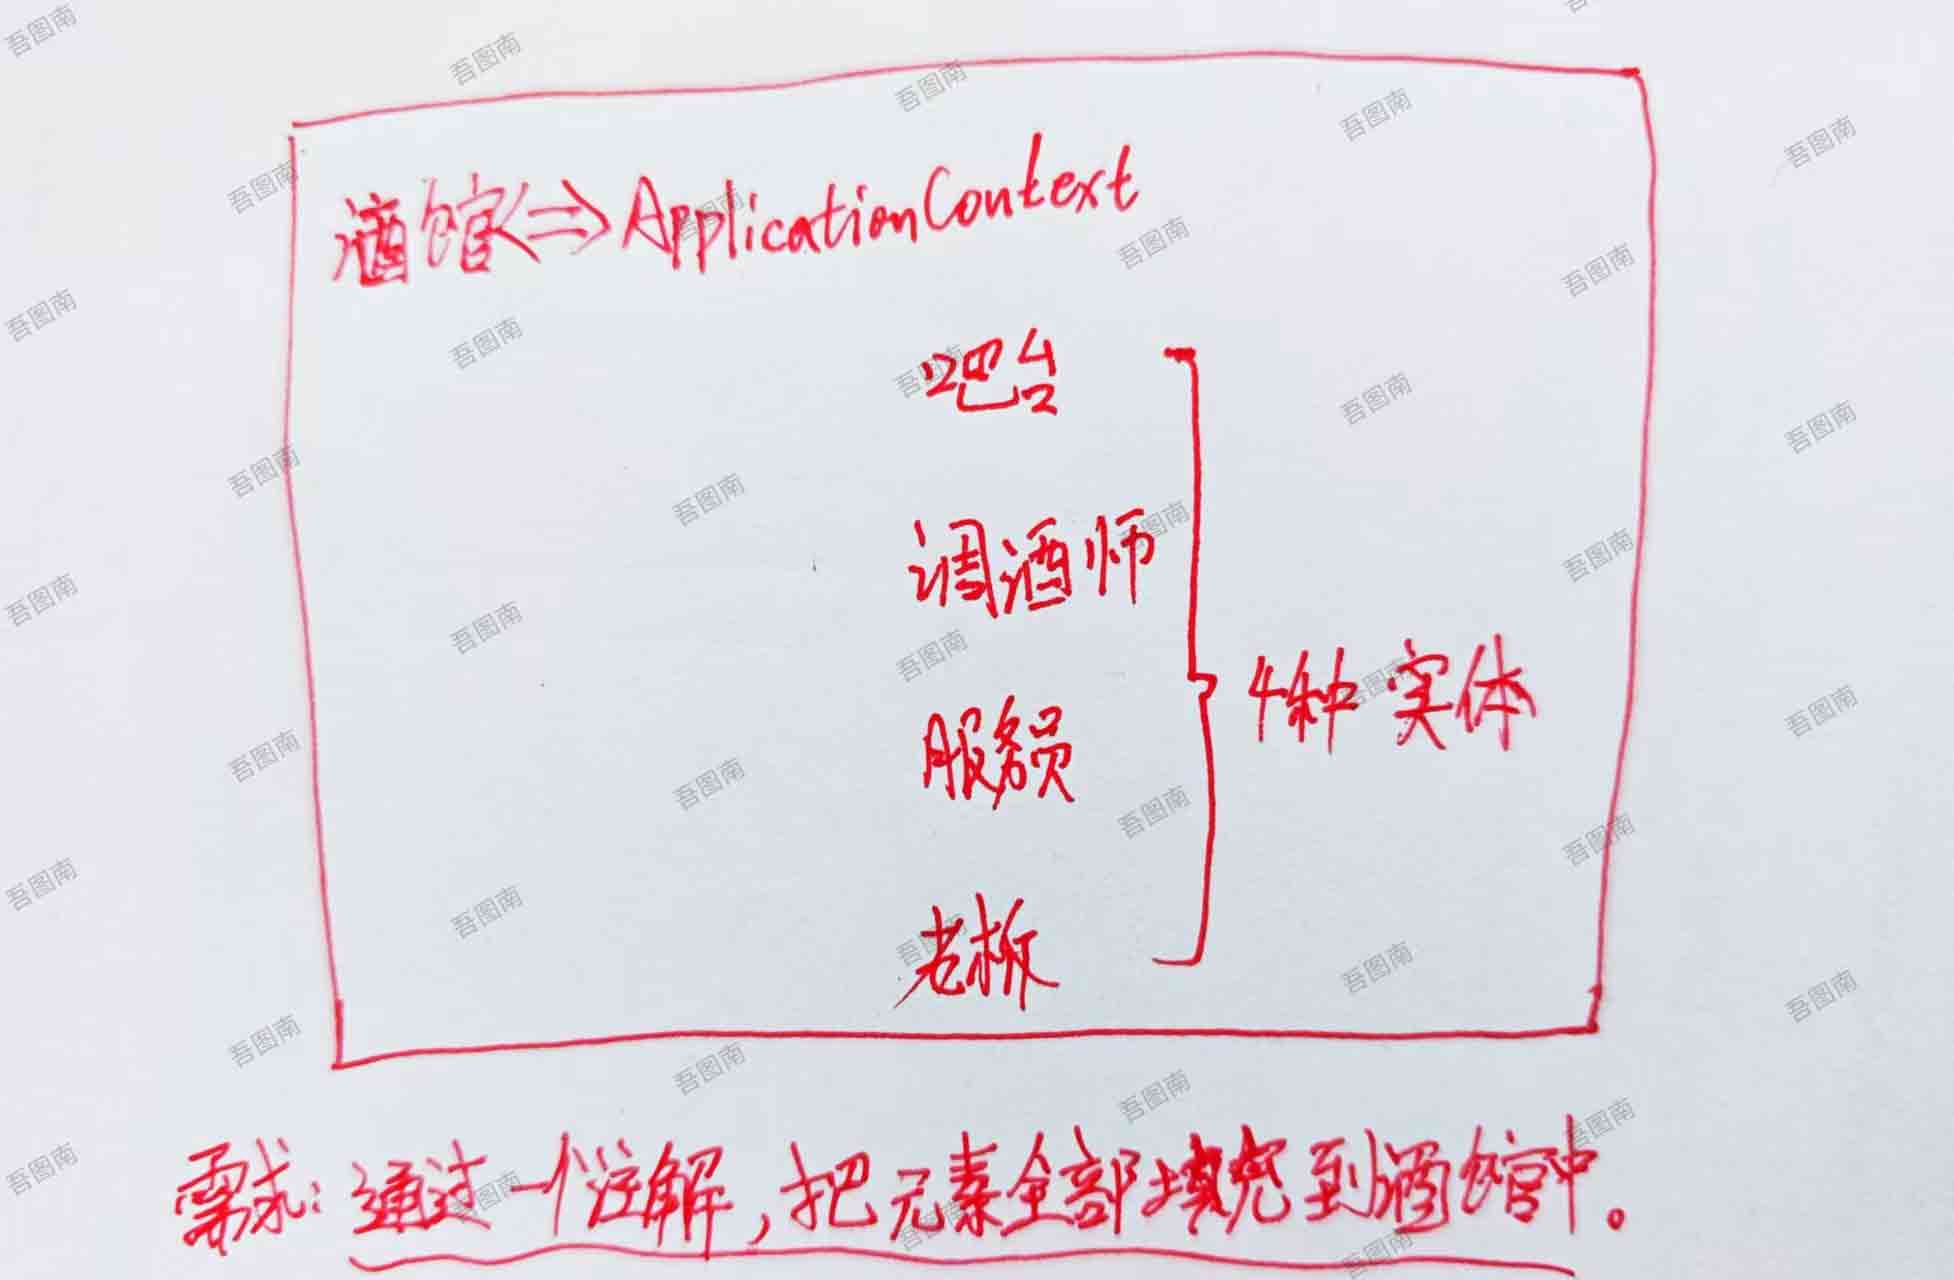 酒馆<=>ApplicationContext
吧台
调酒师
服务员
老板
4种实体
需求:通过一个注解,把元素全部填充到酒馆中。
吾图南